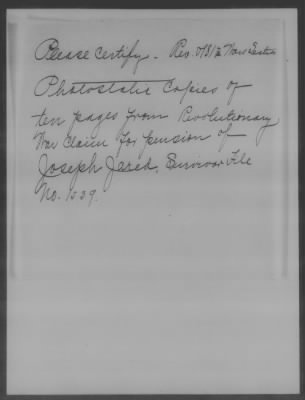 Please certify. Rev. & 1812 Wars Section
Photostatic Copies of
ten pages from Revolutionary
War Claim for pension of
Joseph Jared, Survivor File
No. 1539.